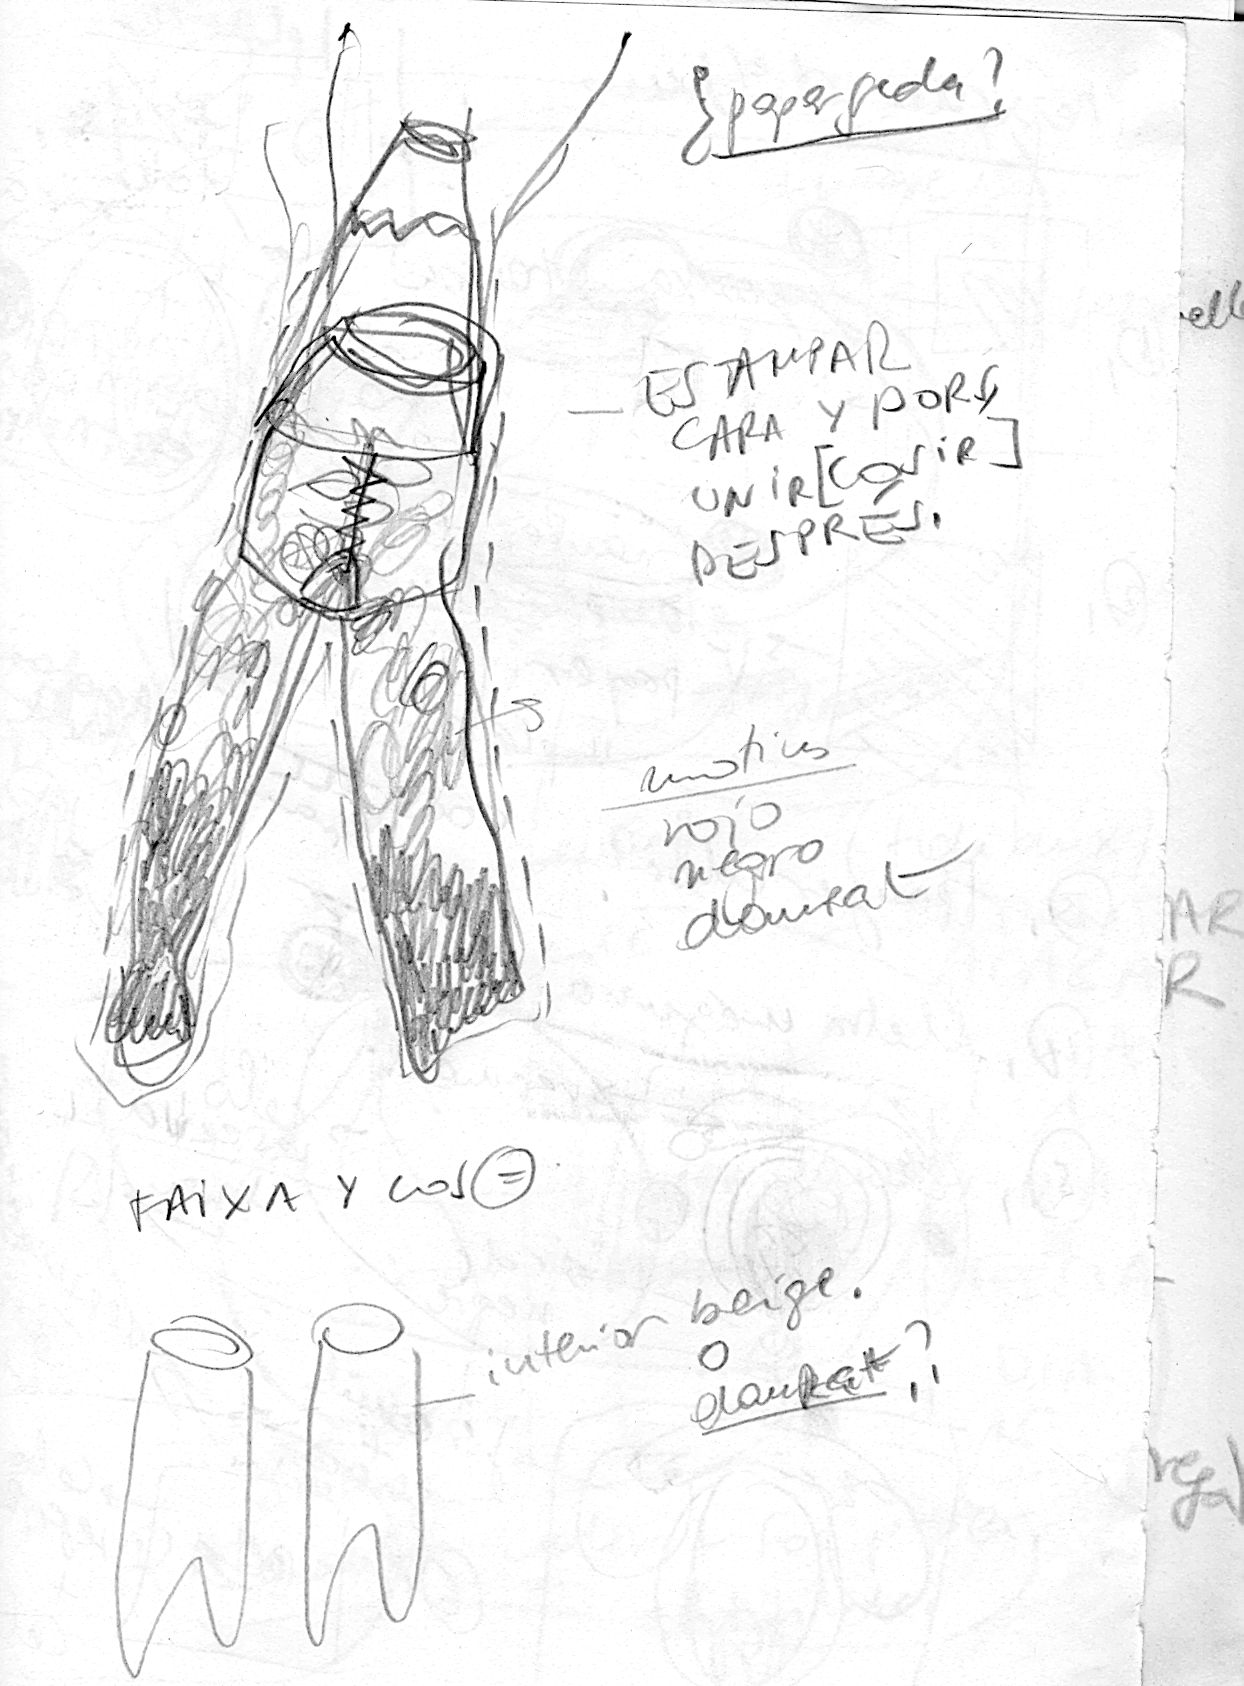 ¿papergeda?
ESTAMPAR
CARA Y DORS,
UNIR [COSIR]
DESPRÉS.
motius
rojo
negro
daurat
FAIXA Y COS =
interior beige.
o
daurat?